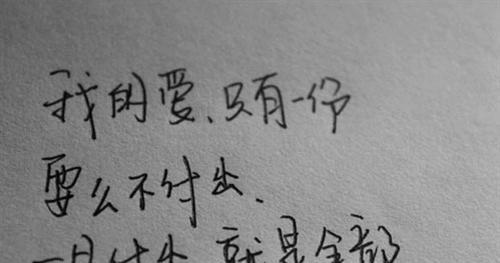 我的爱、只有一份
要么不付出、
一旦付出 就是全部